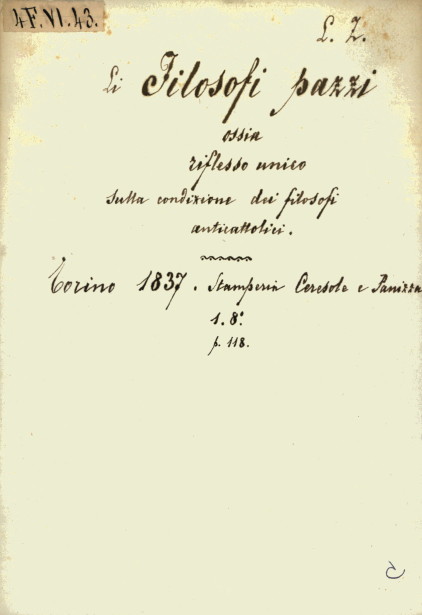 4F.VI.43.
L. Z.
Li Filosofi pazzi
ossia
riflesso unico
sulla condizione dei filosofi
anticattolici.
Torino 1837. Stamperia Ceresole e Panizza
1. 8º.
p. 118.